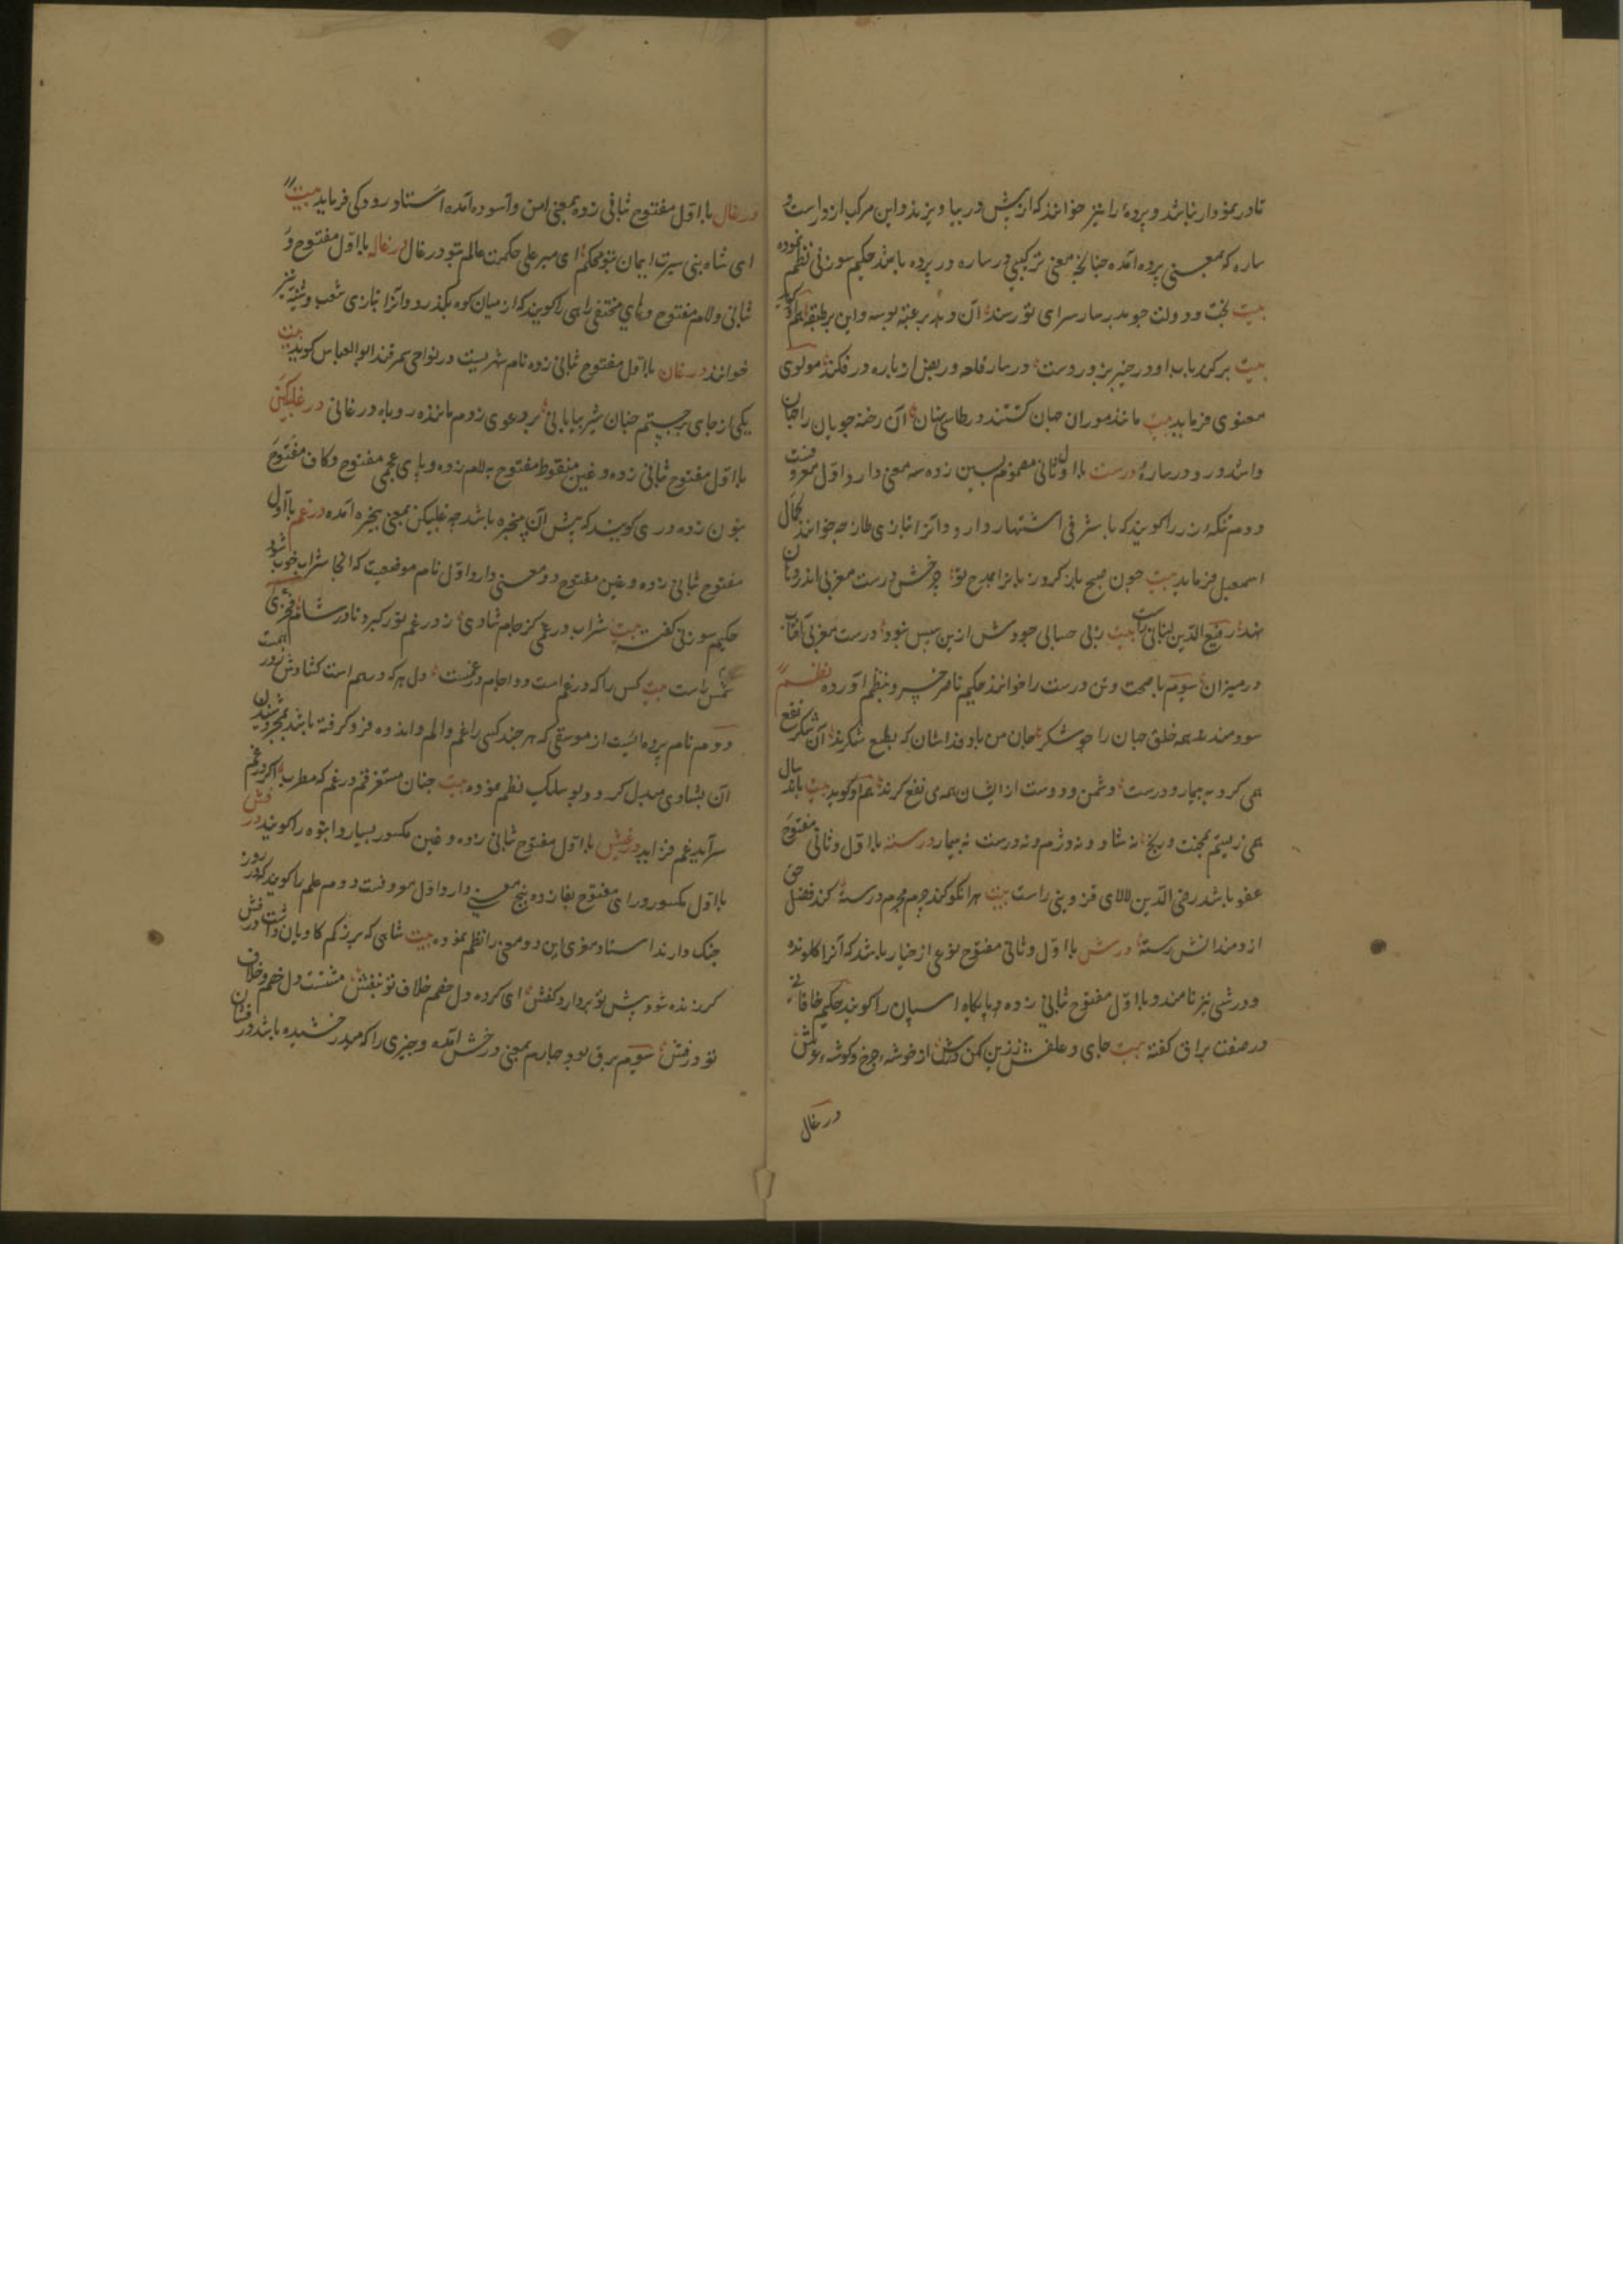 تا در نمودار نباشد و پرده را نیز خوانند که از پیش در بیاویزند و این مرکب از در است و
ساره که بمعنی پرده آمده چنانچه معنی ترکیبی درساره در پرده باشد حکیم سوزنی نظم نموده
بیت بخت و دولت چو بدرسار سرای تو رسند آن دهد بر عتبه بوسه و این بر طبقه هم او گوید
بیت برکند باب او در خیبر بزور دست درسار قلعه در بعض از باره در فکند مولوی
معنوی فرماید بیت مانند موران جهان گشتند در طاسی نهان آن رخنه جویان را
واشد در و درساره درست با اول و ثانی مضموم بسین زده سه معنی دارد اول معروفست
دوم تنکه زر را گویند که با شرفی اشتهار دارد و آنرا بتازی خوانند کمال
اسمعیل فرماید بیت چون صبح باز کرد زبانرا بمدح تو چرخش درست مغربی اندر دهان
نهد رفیع الدین لنبانی راست بیت ز بی حسابی جودش ازین سپس نبود درست مغربی آفتاب
در میزان سوم با صحت و تن درست را خوانند حکیم ناصر خسرو بنظم آورده نظم
سودمند همه خلق جهان را چو شکر جان من باد فداشان که بطبع شکرند آن شکر نفع
همی کرد به بیمار و درست دشمن و دوست ازایشان همه می نفع گرند هم او گوید بیت سال
همی زیستم بمحنت و رنج نه شاد و نه دژم و نه درست نه بیمار درسته با اول و ثانی مفتوح
عفو باشد رضی الدین لالای قزوینی راست بیت هر آنکو کند جرم مجرم درسته کند فضل حق
ازو مندانش رسته درش با اول و ثانی مفتوح نوعی از خیار باشد که آنرا کالونده
و درشی نیز نامند و با اول مفتوح ثانی زده و پایگاه اسپان را گویند حکیم خاقانی
در صفت براق گفته بیت جای و علفش زرین کهن از خوشه چرخ و گوشه
درغال
درغال با اول مفتوح ثانی زده بمعنی امن و آسوده آمده استاد رودکی فرماید بیت
ای شاه نبی سیرت ایمان بتو محکم ای میر علی حکمت عالم بتو درغال درغاله با اول مفتوح و
ثانی و لام مفتوح و های مختفی راهی را گویند که از میان کوه بگذرد و آنرا بتازی شعب و ثنیه نیز
خوانند درغان با اول مفتوح ثانی زده نام شهریست در نواحی سمرقند ابوالعباس گوید بیت
یکی از جای برجستم چنان شیر بیابانی بر دعوی زدم مانند روباه درغانی درغلبکنی
با اول مفتوح ثانی زده و غین منقوط مفتوح به لام زده و بای عجمی مفتوح و کاف مفتوح
بنون زده دری گویند که پیش آن پنجره باشد چه غلبکن بمعنی پنجره آمده درغم با اول
مفتوح ثانی زده و غین مفتوح دو معنی دارد اول نام موضعیست که آنجا شراب خوب شود
حکیم سوزنی گفته بیت شراب درغمی کز جام شادی زدر غم نور گیرد نادر شام فخری
شمس راست بیت کس را که درغم است دوا جام درغمست دل هر که درهم است
دوم نام پرده ایست از موسیقی که هر چند کسی را غم و الم و اندوه فرو گرفته باشد بمجرد شنیدن
آن بشادی مبدل گردد پور بهاء نظم نموده بیت چنان مستغرقم در غم که مطرب اگر درغم
سراید غم فزاید درغیش با اول مفتوح ثانی زده و غین مکسور بسیار و انبوه را گویند درفش
با اول مکسور و رای مفتوح بفا زده پنج معنی دارد اول معروفست دوم علم را گویند که در روز
جنگ دارند استاد معزی این دو معنی را نظم نموده بیت شاهی که برزکم کاویان داشت درفش
گر زنده شود پیش تو بردارد کفش ای کرده دل خصم خلاف تو بنفش دل خصم و خلاف
تو درفش سوم برق بود چهارم بمعنی درخش آمده و چیزی را که میدرخشیده باشد درفشان